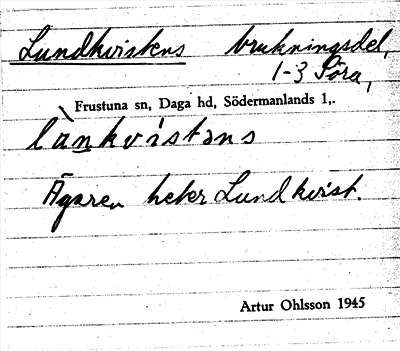 Lundkvistens brukningsdel,
1-3 Söra,
Frustuna sn, Daga hd, Södermanlands l,.
lànkvistəns
Ägaren heter Lundkvist.
Artur Ohlsson 1945